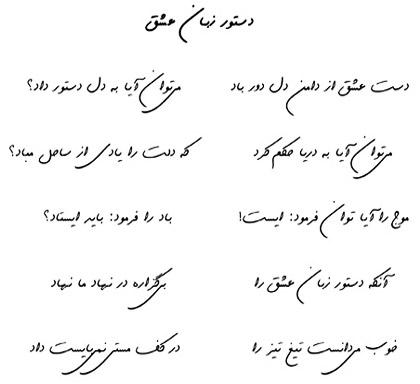 دستور زبان عشق
دست عشق از دامن دل دور باد
می‌توان آیا به دل دستور داد؟
می‌توان آیا به دریا حکم کرد
که دلت را یادی از ساحل مباد؟
موج را آیا توان فرمود: ایست!
باد را فرمود: باید ایستاد؟
آنکه دستور زبان عشق را
بی‌گزاره در نهاد ما نهاد
خوب می‌دانست تیغ تیز را
در کف مستی نمی‌بایست داد